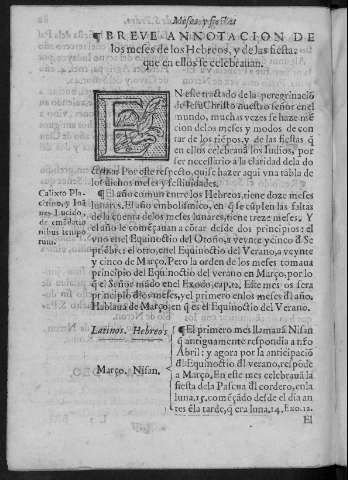 Meses y fiestas
¶ BREVE ANNOTACION DE
los meses de los Hebreos, y de las fiestas
que en ellos se celebrauan.
EN este tractado de la peregrinacion
de Iesu Christo nuestro señor en el
mundo, muchas vezes se haze men
cion de los meses y modos de con
tar de los tiẽpos, y de las fiestas q̃
en ellos celebrauã los Iudios, por
ser necessario a la claridad de la do
ctrina: Por este respecto, quise hazer aqui vna tabla de
los dichos meses y festiuidades.
Calixto Pla-
cẽtino, y Ioã
nes Lucido,
de emẽdatio
nibus tempo
rum.
¶ El año comun entre los Hebreos, tiene doze meses
lunares. El año embolismico, en q̃ se suplen las faltas
de la cuenta de los meses lunares, tiene treze meses. Y
el año le començauan a cõtar desde dos principios: el
vno en el Equinoctio del Otoño, a veynte y cinco đ Se
ptiẽbre: el otro, en el Equinoctio del Verano, a veynte
y cinco de Março. Pero la orden de los meses tomaua
principio del Equinoctio del verano en Março, por lo
que el Señor mãdo en el Exodo, cap.12. Este mes os sera
principio đlos meses, y el primero enlos meses đl año.
Hablaua de Março, en q̃ es el Equinoctio del Verano.
Latinos. Hebreos.
Março. Nisan.
¶ El primero mes llamauã Nisan
q̃ antiguamente respondia a nr̃o
Abril: y agora por la anticipaciõ
đl Equinoctio đl verano, respõde
a Março. En este mes celebrauã la
fiesta de la Pascua đl cordero, en la
luna.15. començãdo desde el dia an
tes ẽ la tarde, q̃ era luna.14. Exo.12.
El